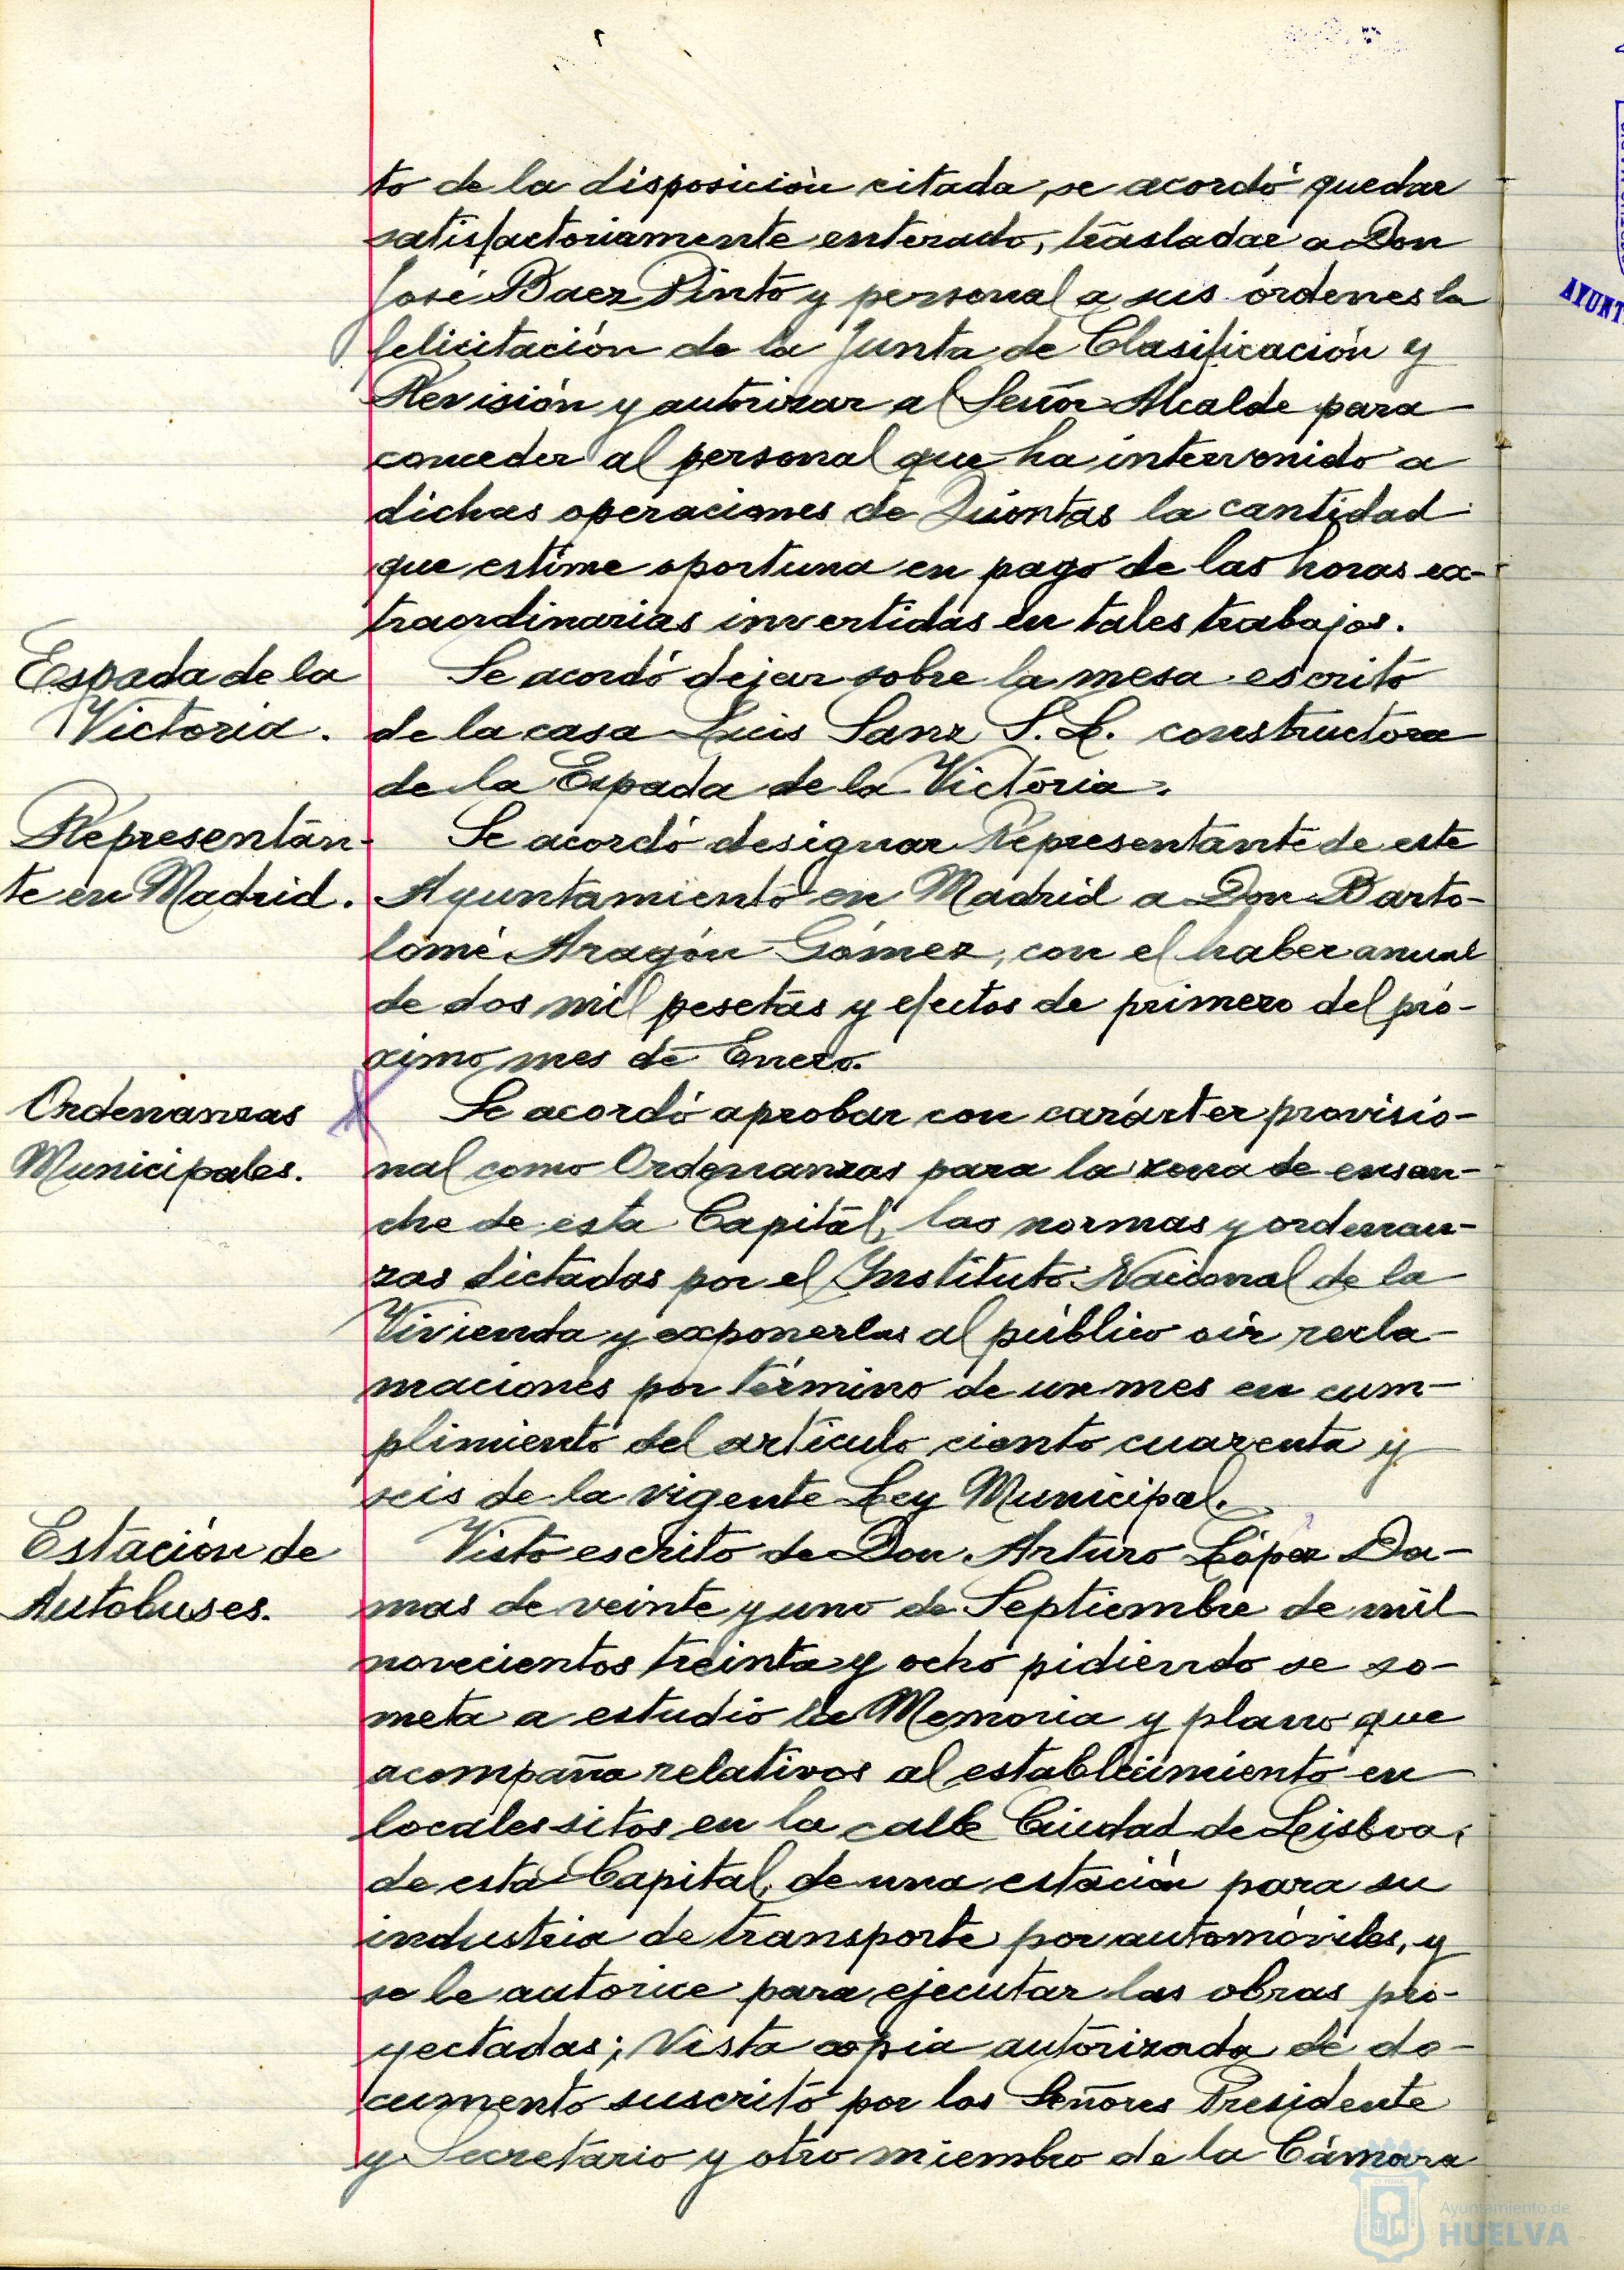 to de la disposición citada, se acordó quedar
satisfactoriamente enterado, trasladar a Don
José Baez Pinto y personal a sus órdenes la
felicitación de la Junta de Clasificación y
Revisión y autorizar al Señor Alcalde para
conceder al personal que ha intervenido a
dichas operaciones de Quintas la cantidad
que estime oportuna en pago de las horas ex-
traordinarias invertidas en tales trabajos.
Espada de la
Victoria.
Se acordó dejar sobre la mesa escrito
de la casa Luis Sanz S. L. constructora
de la Espada de la Victoria.
Representan-
te en Madrid.
Se acordó designar Representante de este
Ayuntamiento en Madrid a Don Barto-
lomé Aragón Gómez, con el haber anual
de dos mil pesetas y efectos de primero del pró-
ximo mes de Enero.
Ordenanzas
Municipales.
Se acordó aprobar con carárter provisio-
nal como Ordenanzas para la zona de ensan-
che de esta Capital, las normas y ordenan-
zas dictadas por el Instituto Nacional de la
Vivienda y exponerlas al público oir recla-
maciones por término de un mes en cum-
plimiento del artículo ciento cuarenta y
seis de la vigente Ley Municipal.
Estación de
Autobuses.
Visto escrito de Don Arturo López Da-
mas de veinte y uno de Septiembre de mil
novecientos treinta y ocho pidiendo se so-
meta a estudio la Memoria y plano que
acompaña relativos al establecimiento en
locales sitos en la calle Ciudad de Lisboa,
de esta Capital, de una estación para su
industria de transporte por automóviles, y
se le autorice para ejecutar las obras pro-
yectadas; Vista copia autorizada de do-
cumento suscrito por los Señores Presidente
y Secretario y otro miembro de la Cámara
AYUNT
Ayuntamiento de
HUELVA